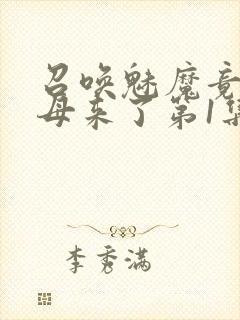 召唤魅魔竟
母来了第1集
李秀满